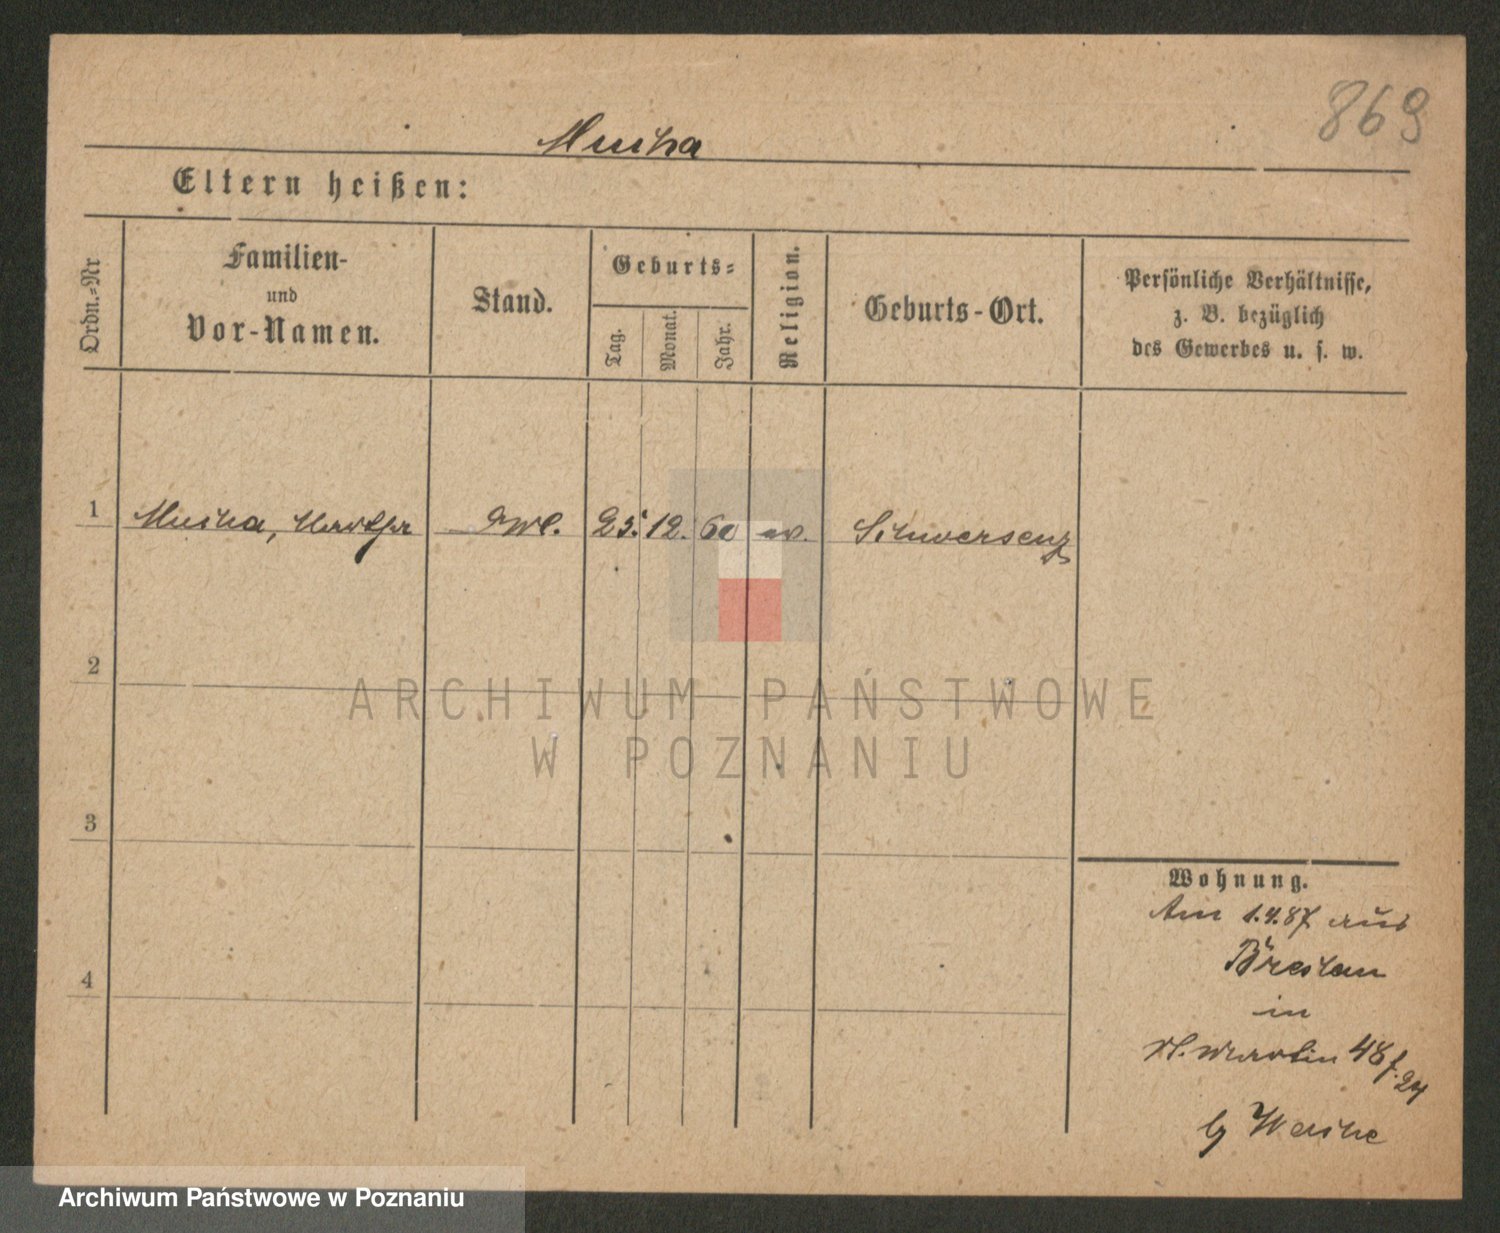 869
Mucha
Eltern heißen:
Ordn.-Nr
Familien-
und
Vor-Namen.
Stand.
Geburts-
Tag.
Monat.
Jahr.
Religion.
Geburts-Ort.
Persönliche Verhältnisse,
z. B. bezüglich
des Gewerbes u. s. w.
1 Mucha, Martha 25. 12. 60 ev. Schwersenz
2
3
4
ARCHIWUM PAŃSTWOWE
W POZNANIU
Wohnung.
Am 1.4.87 aus
Breslau
in
St. Martin 48
Archiwum Państwowe w Poznaniu